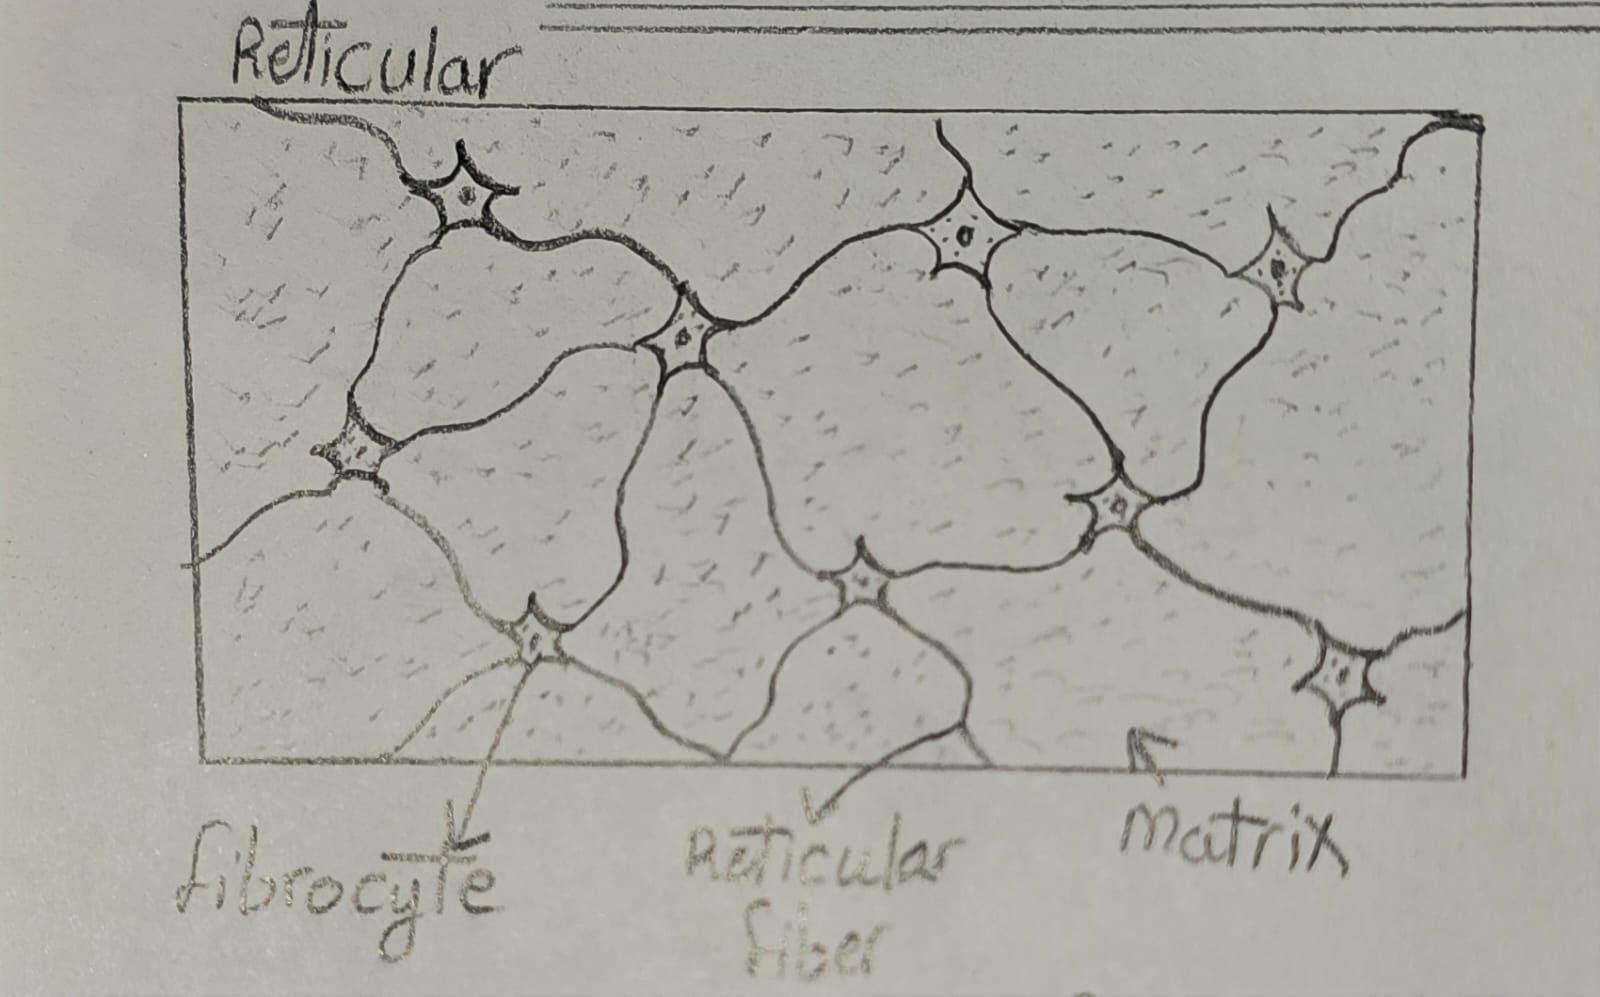 Reticular
fibrocyte
Reticular
fiber
Matrix